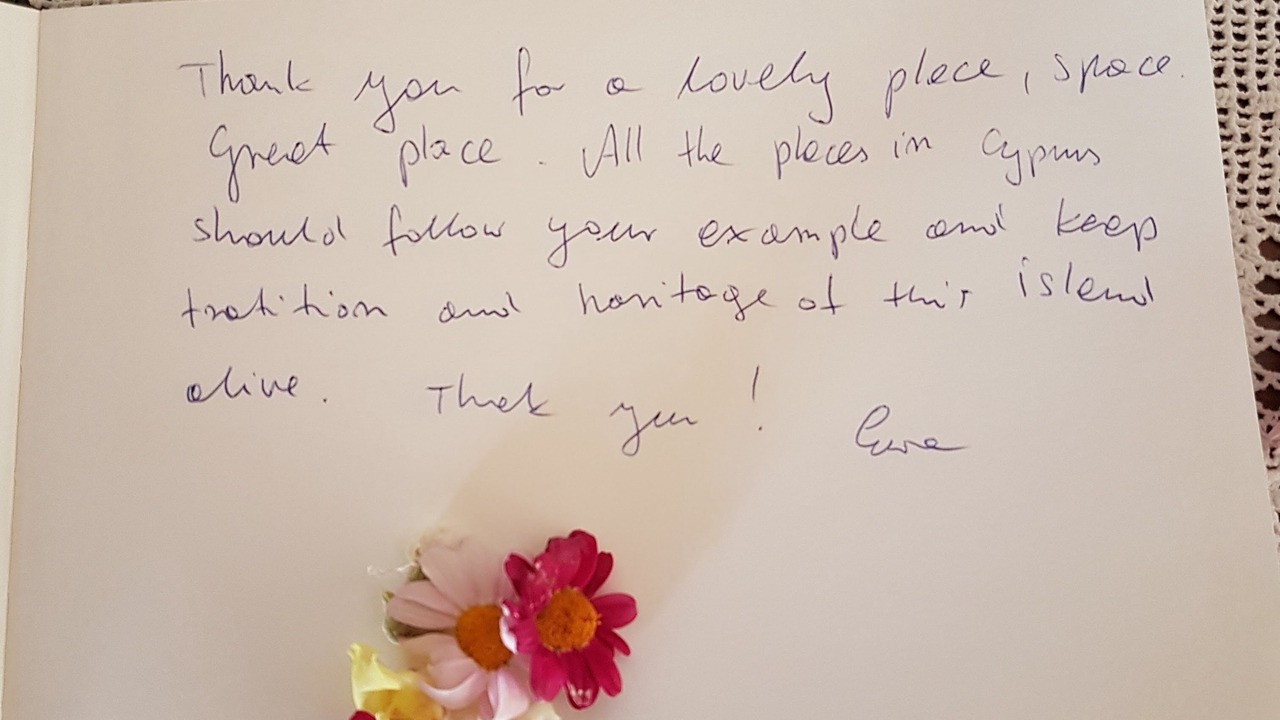 Thank you for a lovely place, space.
Great place. All the places in Cyprus
should follow your example and keep
tratition and haritage of this island
alive. Thank you! Ewa